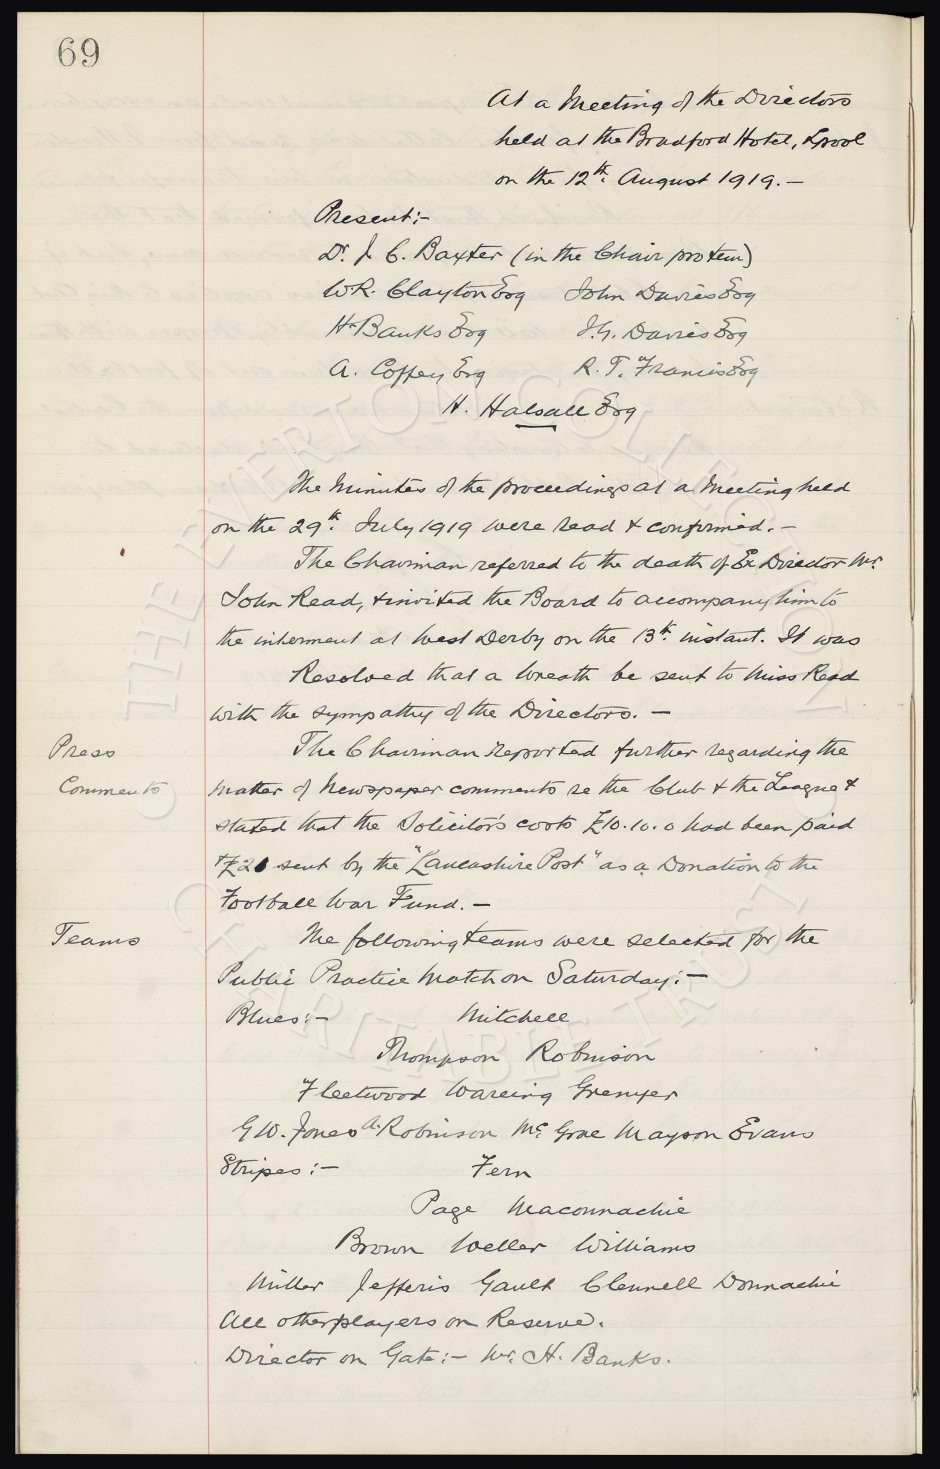 69
At a Meeting of the Directors
held at the Bradford Hotel, Lpool
on the 12th. August 1919.—
Present:—
Dr. J. C. Baxter (in the Chair pro tem)
W.R. Clayton Esq John Davies Esq
H. Banks Esq J.G. Davies Esq
A. Coffey Esq R. T. Francis Esq
H. Halsall Esq
The Minutes of the proceedings at a Meeting held
on the 29th. July 1919 were read & confirmed.—
The Chairman referred to the death of Ex Director Mr.
John Read, & invited the Board to accompany him to
the interment at West Derby on the 13th. instant. It was
Resolved that a wreath be sent to Miss Read
with the sympathy of the Directors.—
Press The Chairman reported further regarding the
Comments matter of Newspaper comments re the Club & the League &
stated that the Solicitor's costs £10.10.0 had been paid
& sent by the "Lancashire Post" as a Donation to the
Football War Fund.—
Teams The following teams were selected for the
Public Practice Match on Saturday:—
Blues:— Mitchell
Thompson Robinson
Fleetwood Wareing Grenyer
G.W. Jones A. Robinson McGrae Mayson Evans
Stripes:— Fern
Page Maconnachie
Brown Weller Williams
Miller Jefferis Gault Clennell Donnachie
All other players on Reserve.
Director on Gate:— Mr. H. Banks.
THE EVERTON COLLECTION
CHARITABLE TRUST